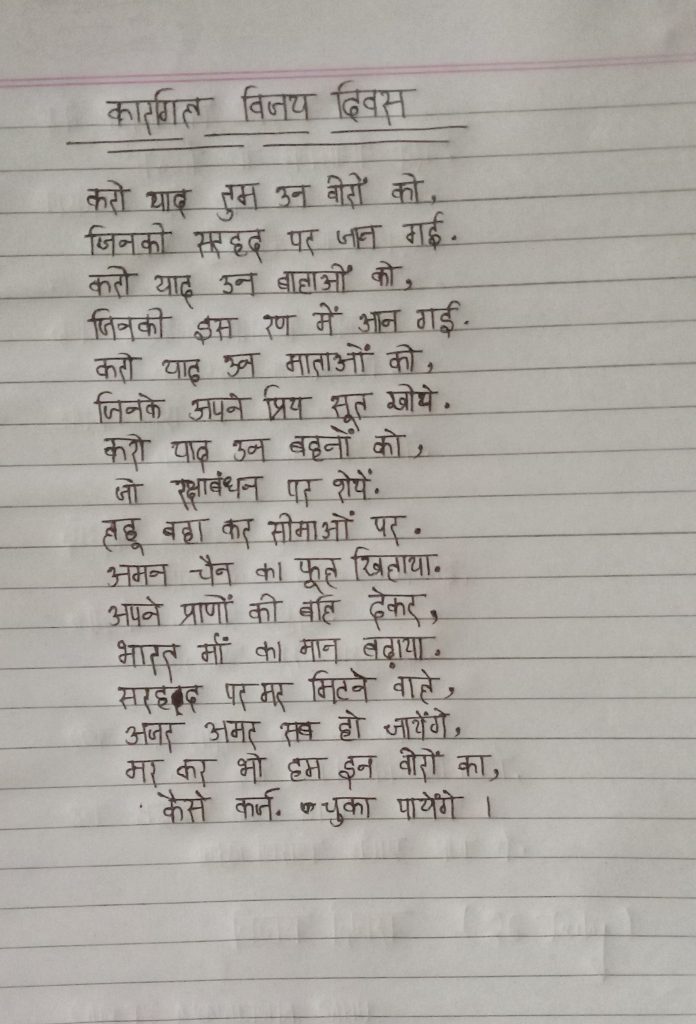 कारगिल विजय दिवस
करो याद तुम उन वीरों को,
जिनकी सरहद पर जान गई.
करो याद उन बालाओं को,
जिनकी इस रण में आन गई.
करो याद उन माताओं को,
जिनके अपने प्रिय सूत खोये.
करो याद उन बहनों को,
जो रक्षाबंधन पर रोयें.
लहू बहा कर सीमाओं पर.
अमन चैन का फूल खिलाया.
अपने प्राणों की बलि देकर,
भारत माँ का मान बढ़ाया.
सरहद पर मर मिटने वाले,
अजर अमर सब हो जायेंगे,
मर कर भी हम इन वीरों का,
कैसे कर्ज. चुका पायेंगे ।